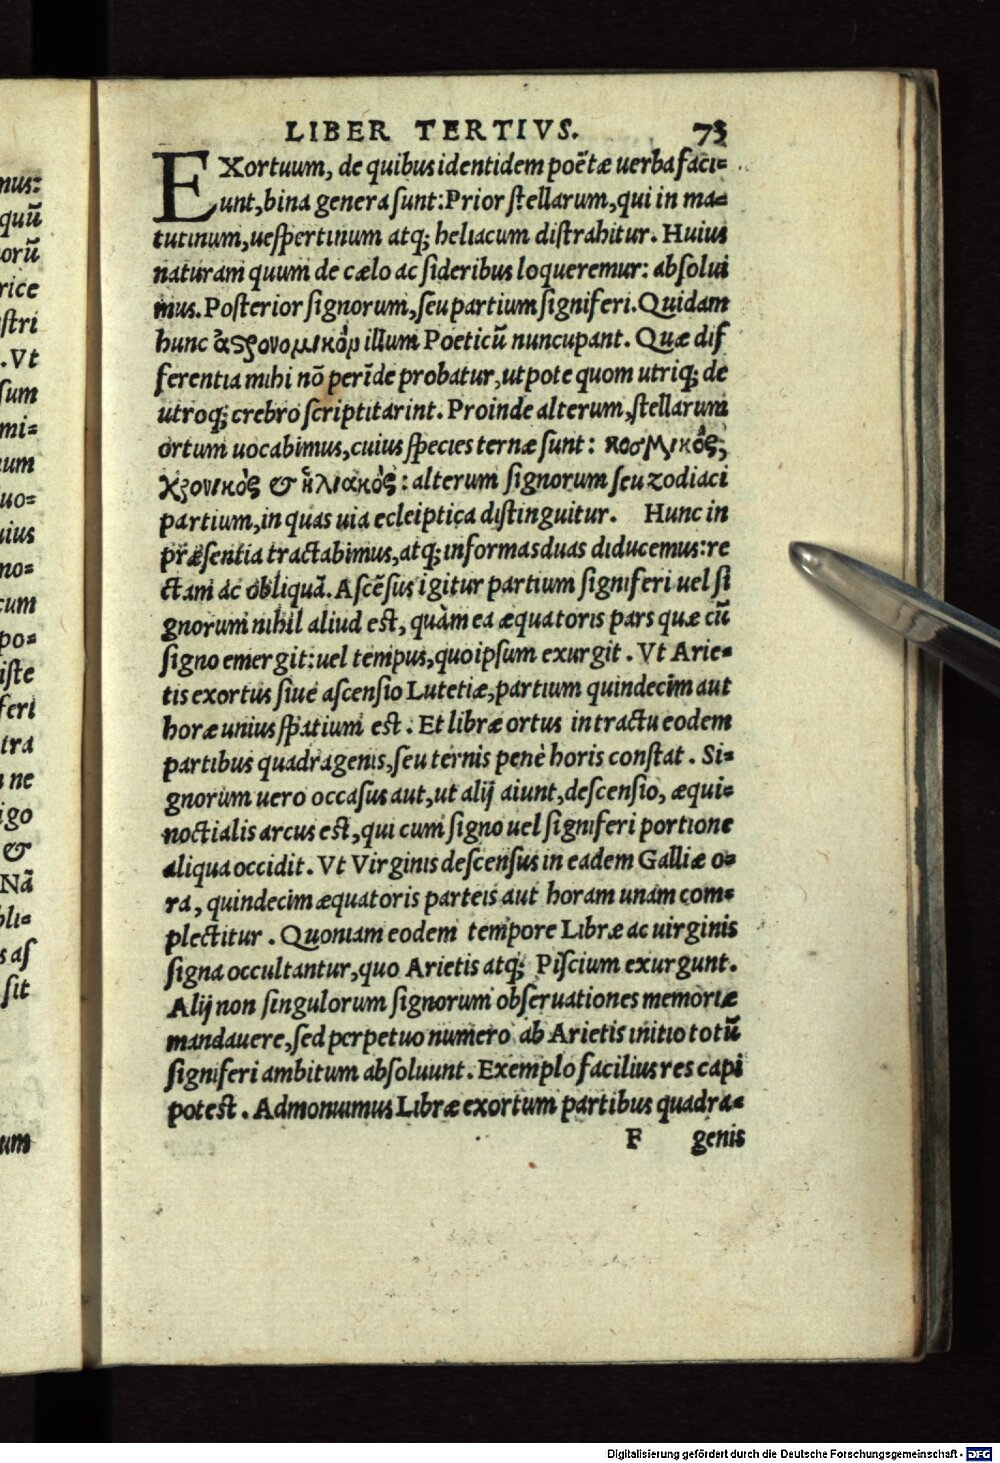 LIBER TERTIVS. 73
EXortuum, de quibus identidem poëtæ uerba faci-
unt, bina genera sunt: Prior stellarum, qui in ma-
tutinum, uespertinum atq; heliacum distrahitur. Huius
naturam quum de cælo ac sideribus loqueremur: absolui
mus. Posterior signorum, seu partium signiferi. Quidam
hunc ἀςρονομικὸν illum Poeticū nuncupant. Quæ dif
ferentia mihi nō perīde probatur, utpote quom utriq; de
utroq; crebro scriptitarint. Proinde alterum, stellarum
ortum uocabimus, cuius species ternæ sunt: κοσμικὸς,
χρονικὸς & ἡλιακὸς: alterum signorum seu zodiaci
partium, in quas uia ecleiptica distinguitur. Hunc in
præsentia tractabimus, atq; in formas duas diducemus: re
ctam ac obliquā. Ascēsus igitur partium signiferi uel si
gnorum nihil aliud est, quàm ea æquatoris pars quæ cū
signo emergit: uel tempus, quo ipsum exurgit. Vt Arie-
tis exortus siue ascensio Lutetiæ, partium quindecim aut
horæ unius spatium est. Et libræ ortus in tractu eodem
partibus quadragenis, seu ternis penè horis constat. Si-
gnorum uero occasus aut, ut alij aiunt, descensio, æqui-
noctialis arcus est, qui cum signo uel signiferi portione
aliqua occidit. Vt Virginis descensus in eadem Galliæ o-
ra, quindecim æquatoris parteis aut horam unam com-
plectitur. Quoniam eodem tempore Libræ ac uirginis
signa occultantur, quo Arietis atq; Piscium exurgunt.
Alij non singulorum signorum obseruationes memoriæ
mandauere, sed perpetuo numero ab Arietis initio totū
signiferi ambitum absoluunt. Exemplo facilius res capi
potest. Admonuimus Libræ exortum partibus quadra-
F genis
mus:
quū
orū
rice
stri
. Vt
sum
mi-
um
uo-
uius
no-
cum
po-
iste
feri
tra
ne
igo
&
Nā
bli-
s as
sit
um
Digitalisierung gefördert durch die Deutsche Forschungsgemeinschaft - DFG